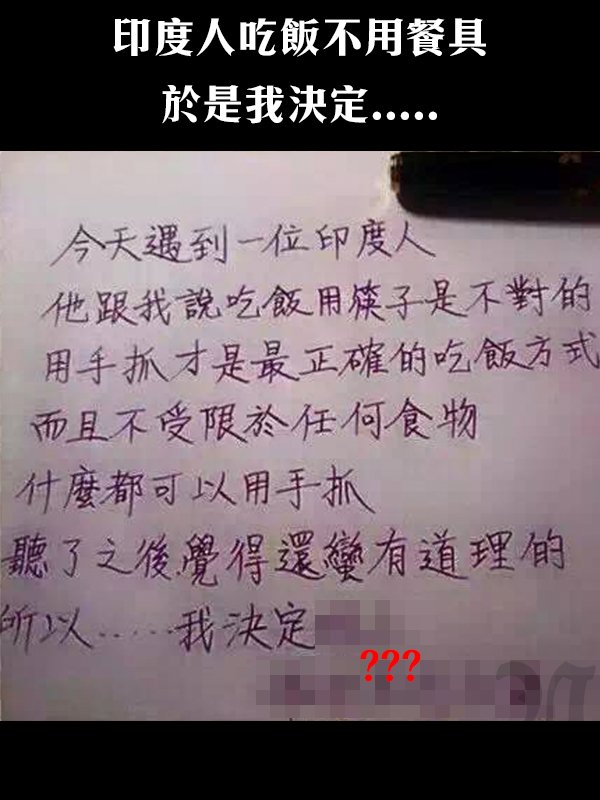 印度人吃飯不用餐具
於是我決定.....
今天遇到一位印度人
他跟我說吃飯用筷子是不對的
用手抓才是最正確的吃飯方式
而且不受限於任何食物
什麼都可以用手抓
聽了之後覺得還蠻有道理的
所以.....我決定
???